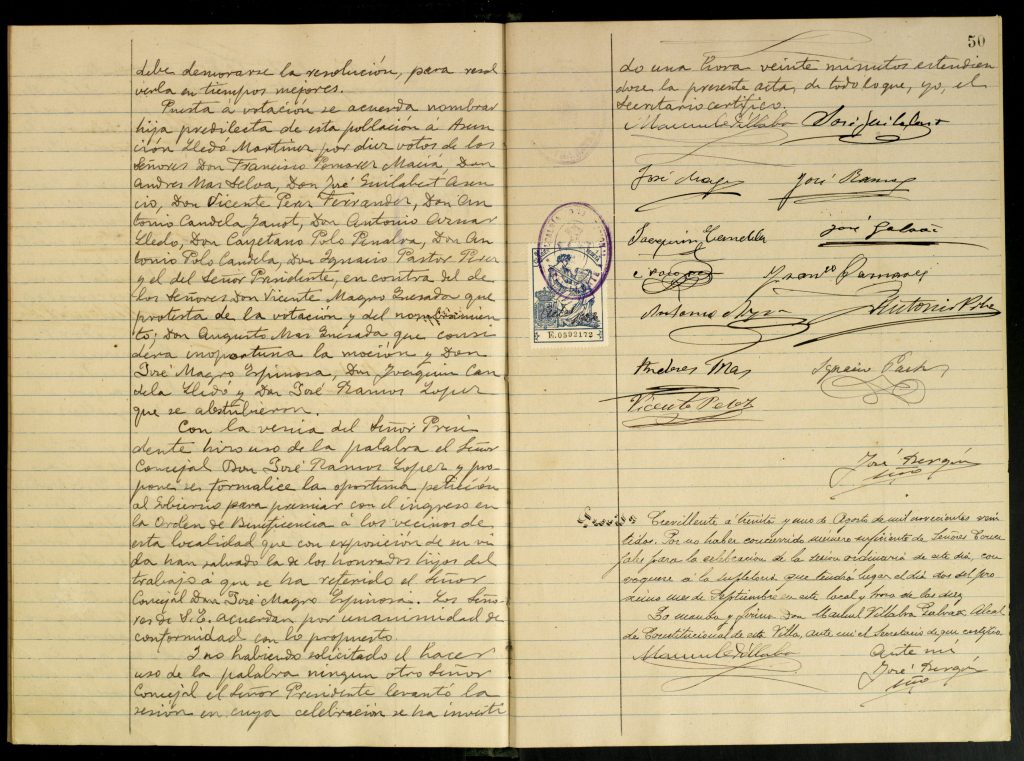 debe demorarse la resolución, para resol
verla en tiempos mejores.
Puesta a votación se acuerda nombrar
hija predilecta de esta población á Asun
ción Lledó Martinez por diez votos de los
Señores Don Francisco Pomares Maciá, Don
Andres Mas Selva, Don José Guilabert Asen
cio, Don Vicente Perez Ferrandez, Don An
tonio Candela Janst, Don Antonio Aznar
Lledo, Don Cayetano Polo Penalva, Don An
tonio Polo Candela, Don Ignacio Pastor Perez
y el del Señor Presidente, en contra del de
los Señores Don Vicente Magro Quesada que
protesta de la votación y del nombramien
to; Don Augusto Mas Quesada que consi
dera inoportuna la moción y Don
José Magro Espinosa, Don Joaquin Can
dela Lledó y Don José Ramos Lopez
que se abstubieron.
Con la venia del Señor Presi
dente hizo uso de la palabra el Señor
Concejal Don José Ramos Lopez y pro
pone se formalice la oportuna petición
al Gobierno para premiar con el ingreso en
la Orden de Beneficencia á los vecinos de
esta localidad que con exposición de su vi
da han salvado la de los honrados hijos del
trabajo a que se ha referido el Señor
Concejal Don José Magro Espinosa. Los Seño
res de S.E. acuerdan por unanimidad de
conformidad con lo propuesto.
Y no habiendo solicitado el hacer
uso de la palabra ningun otro Señor
Concejal el Señor Presidente levantó la
sesión en cuya celebración se ha inverti
50
do una hora veinte minutos estendien
dose la presente acta, de todo lo que, yo, el
Secretario certifico.
Manuel Villalba José Guilabert
José Magro José Ramos
Joaquin Candela José
Franco Pomares
Antonio Aznar Antonio Polo
E.0392172
Andres Mas Ignacio Pastor
Vicente Perez
José
Crevillente á treinta y uno de Agosto de mil novecientos vein
tidos. Por no haber concurrido número suficiente de Señores Conce
jales para la celebración de la sesion ordinaria de este día, con
voquese a la supletoria que tendrá lugar el día dos del pro
ximo mes de Septiembre en este local y hora de las diez
Lo manda y firma Don Manuel Villalba Alcal
de Constitucional de esta Villa, ante mi el Secretario de que certifico
Manuel Villalba Ante mi
José